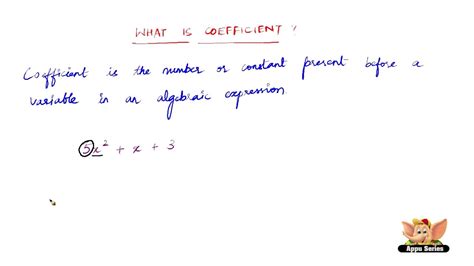 WHAT IS COEFFICIENT ?
Coefficient is the number or constant present before a
variable in an algebraic expression
5x² + x + 3
Appu Series